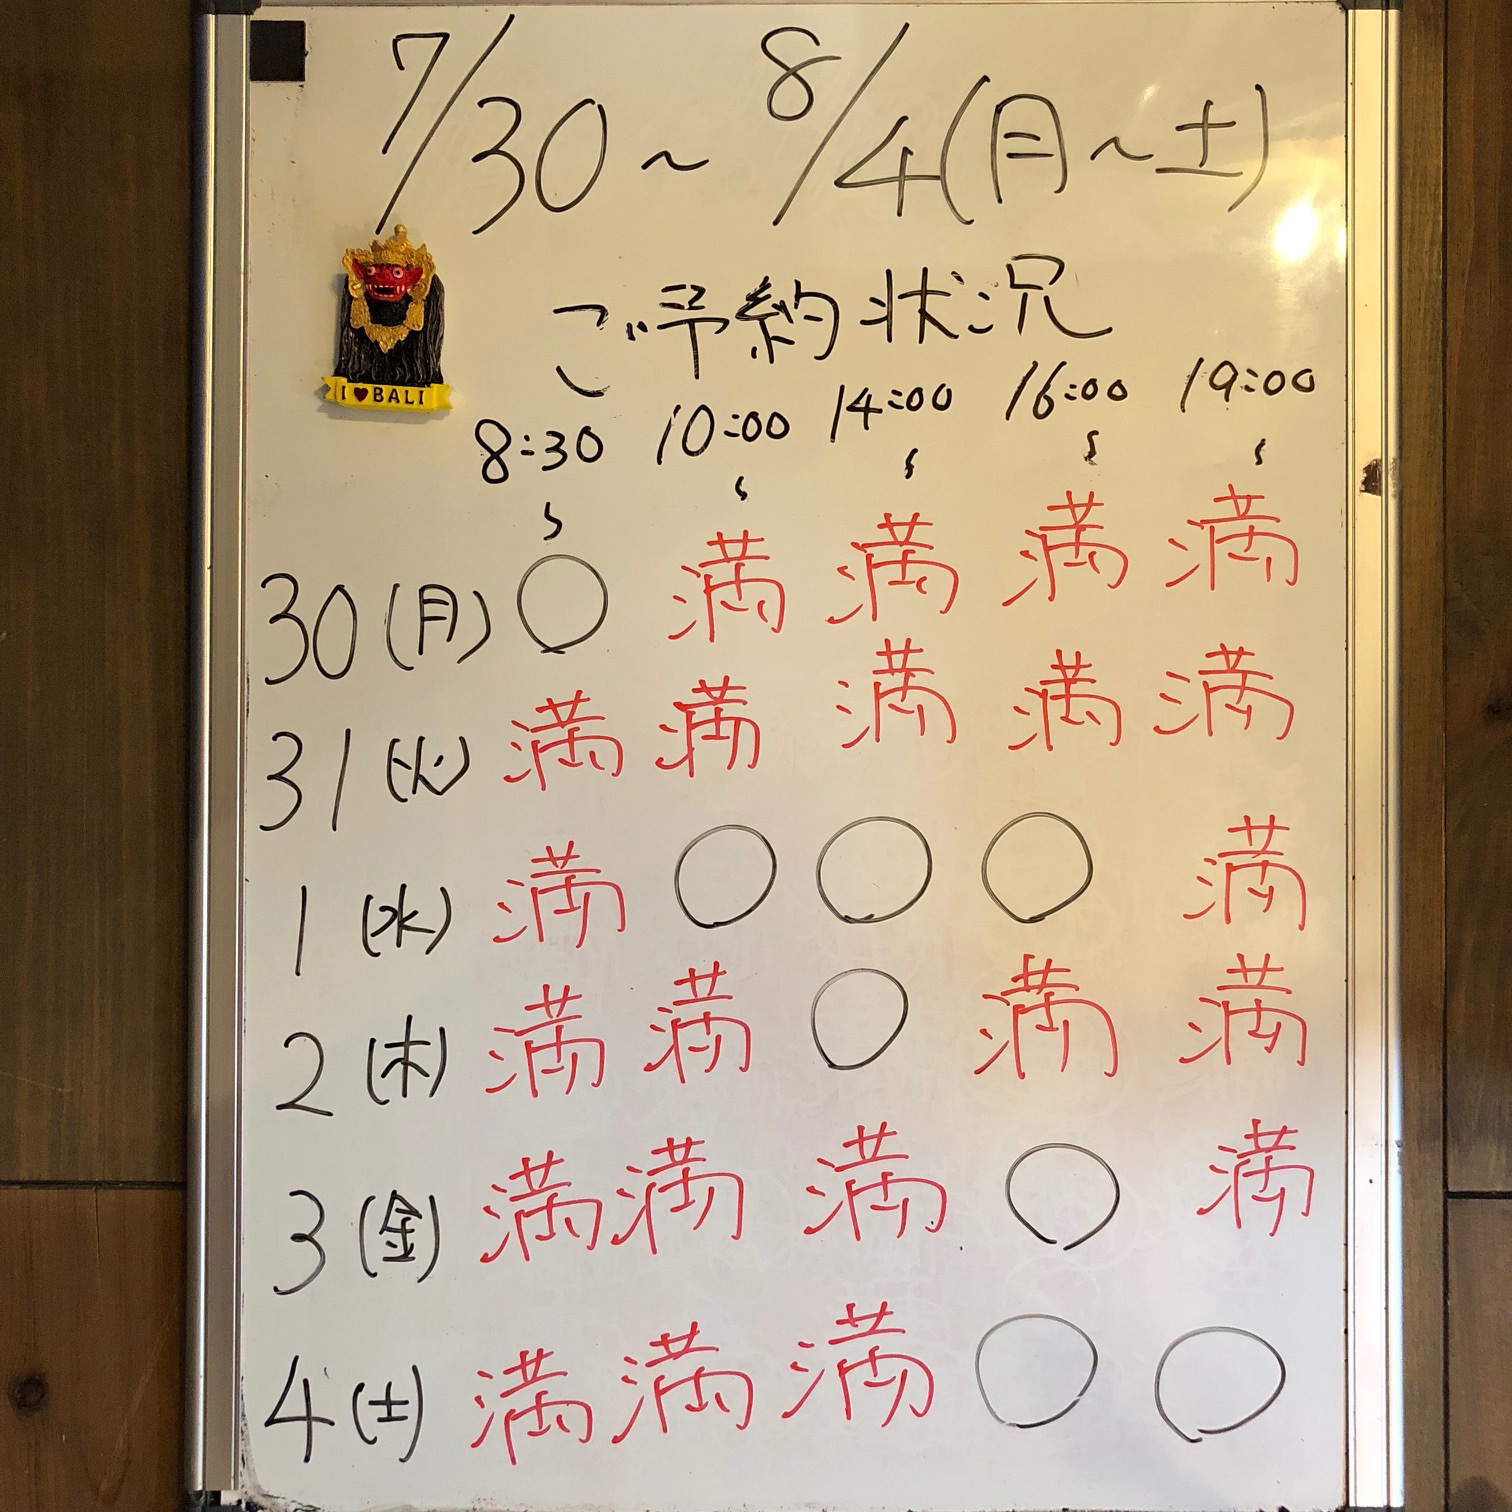 7/30～8/4(月～土)
ご予約状況
I♥BALI
8:30～ 10:00～ 14:00～ 16:00～ 19:00～
30(月) ○ 満 満 満 満
31(火) 満 満 満 満 満
1(水) 満 ○ ○ ○ 満
2(木) 満 満 ○ 満 満
3(金) 満 満 満 ○ 満
4(土) 満 満 満 ○ ○